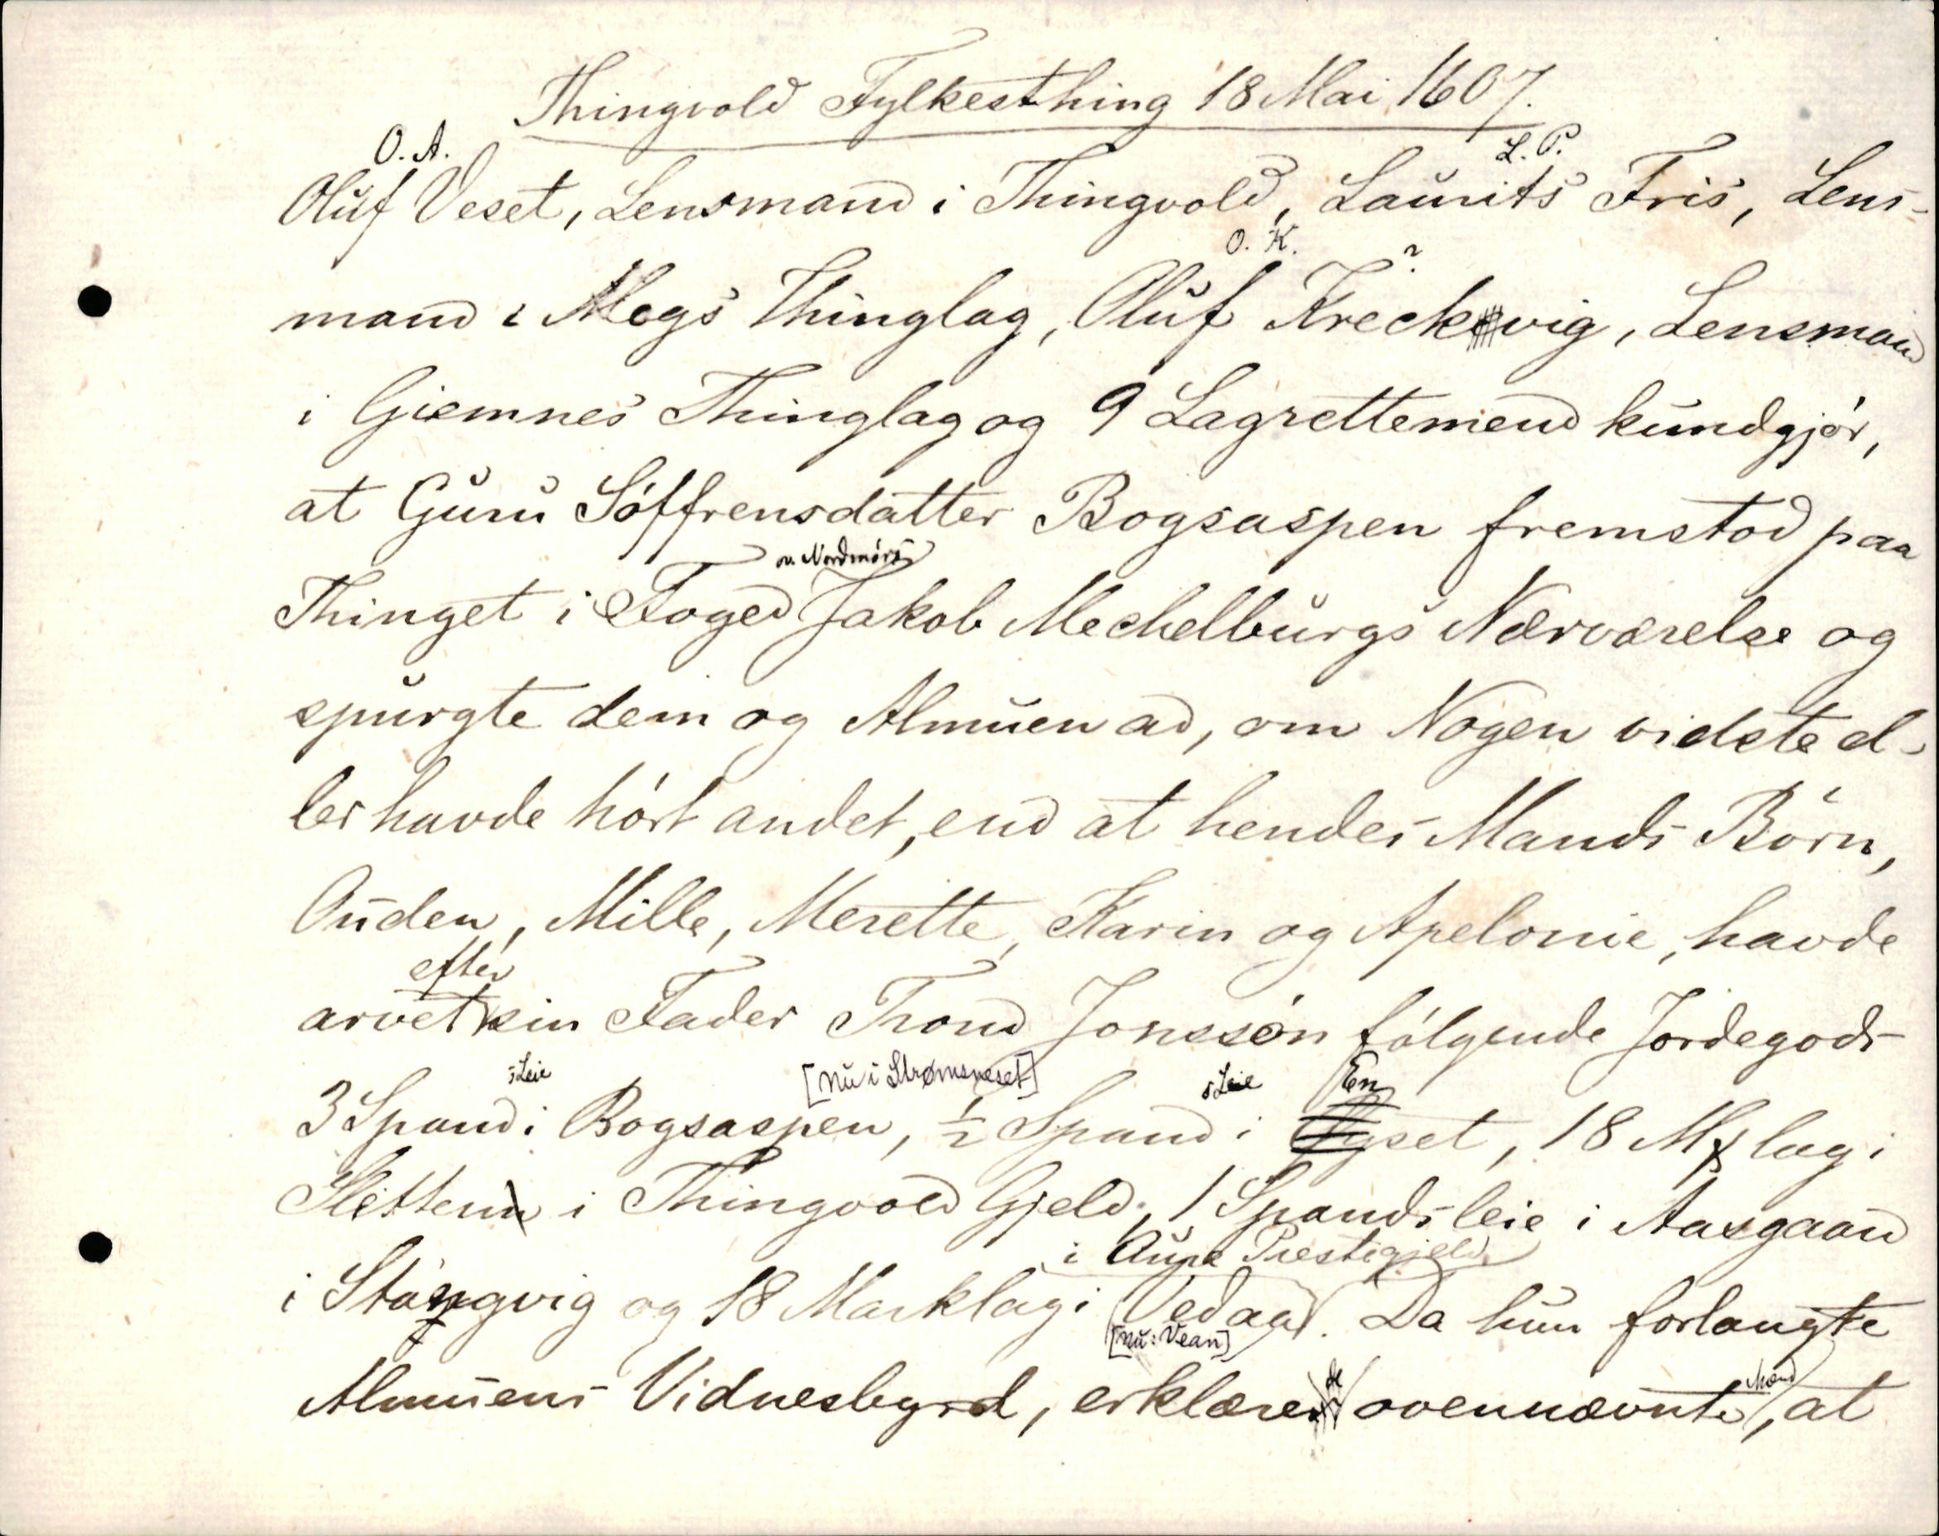 Thingvold Fylkesthing 18 Mai 1607.
O. A. L. P.
Oluf Veset, Lensmand i Thingvold, Laurits Fris, Lens-
O. K. ?
mand i Megs Thinglag, Oluf Kreckvig, Lensmand
i Giemnes Thinglag og 9 Lagrettemend kundgjör,
at Guru Söffrensdatter Bogsaspen fremstod paa
ov. Nordmörs
Thinget i Foged Jakob Mechelburgs Nærværelse og
spurgte dem og Almuen ad, om Nogen vidste el-
ler havde hört andet, end at hendes Mands Börn,
Auden, Mille, Merette, Karin og Apelonie, havde
efter
arvet sin Fader Trond Jonssön fölgende Jordegods
sLeie [nu i Strømsneset] sLeie En
3 Spand i Bogsaspen, ½ Spand i gset, 18 Mklag i
Sletten i Thingvold Gjeld, 1 Spands leie i Aasgaard
i Aure Prestegjeld
i Stangvig og 18 Marklag i Vedaa. Da hun forlangte
[nu: Vean]
de Mænd
Almuens Vidnesbyrd, erklære ovennævnte, at